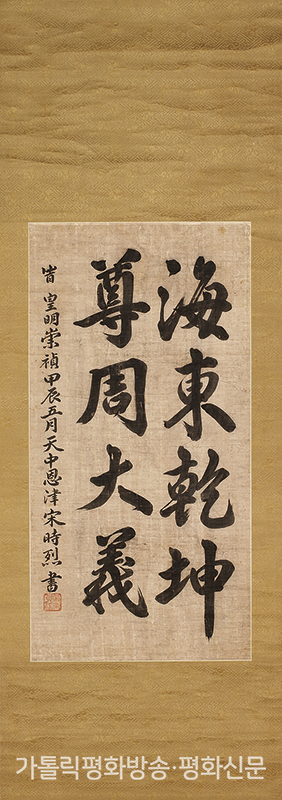 海東乾坤
尊周大義
旹 皇明崇禎甲辰五月天中恩津宋時烈書
가톨릭평화방송·평화신문